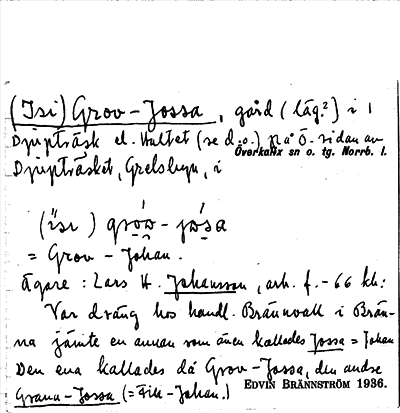 (Isi) Grov-Jossa, gård (läg.²) i 1
Djupträsk el. Hultet (se d.o.) på Ö. sidan av
Överkalix sn o. tg. Norrb. l.
Djupträsket, Grelsbyn, i
(isi) gro̱w-jo̱sa
= Grov-Johan.
Ägare: Lars H. Johansson, arb. f. -66 kh:
Var dräng hos handl. Brännvall i Brän-
na jämte en annan som även kallades Jossa = Johan
Den ena kallades då Grov-Jossa, den andre
Grann-Jossa (= -Johan.)
EDVIN BRÄNNSTRÖM 1936.